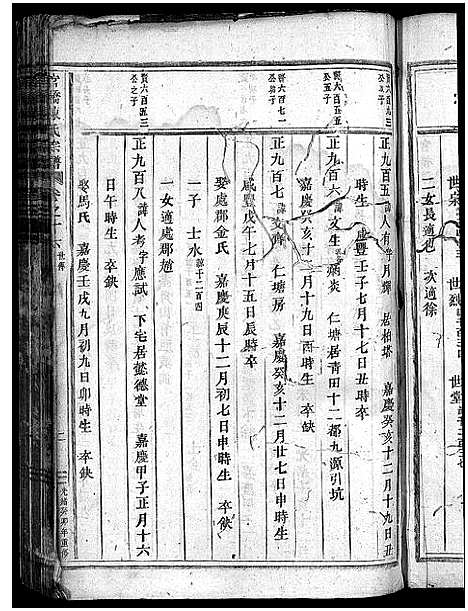 二女長適
次適徐
賢六百九三
正九百五 諱人有 居柏塔 嘉慶癸亥十二月十九日丑
時生 咸豐壬子七月十七日丑時卒
賢六百五五
公五子
正九百六 諱文生 仁塘居青田十二都九源引坑
嘉慶癸亥十二月十九日丑時生 卒缺
賢六百七一
正九百七 諱文齊 仁塘房 嘉慶癸亥十二月廿七日申時生
咸豐戊午七月十五日辰時卒
娶處郡金氏 嘉慶庚辰十二月初七日申時生 卒缺
一子 士水 諱十二百四
一女適處郡趙
賢六百五三
公之子
正九百八 諱人考 字應試 下宅居懿德堂 嘉慶甲子正月十六
日午時生 卒缺
娶馬氏 嘉慶壬戌九月初九日卯時生 卒缺
氏宗譜
世傳
光緒癸卯年重修